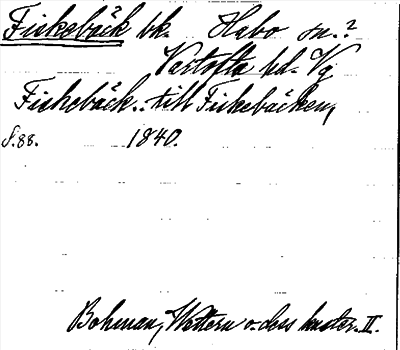 Fiskebäck bk. Habo sn.?
Vartofta hd. Vg
Fiskebäck. till Fiskebäcken,
S.88. 1840.
Bohman, Wettern o. dess kuster. II.